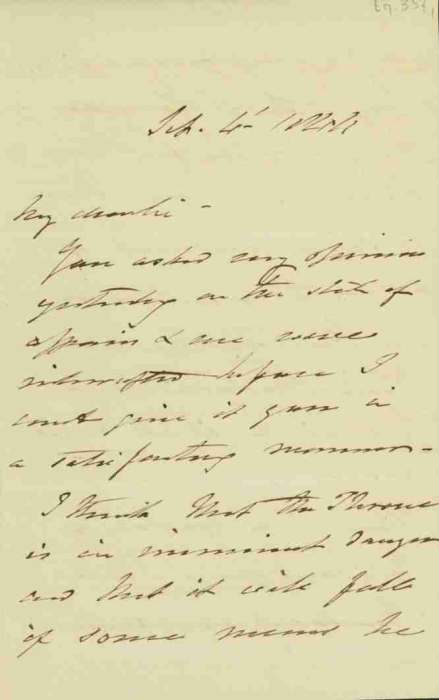 Sep. 4
My
You asked my opinion
yesterday on the state of
affairs & we were
interrupted before I
could give it you in
a satisfactory manner -
I think that the Throne
is in imminent danger
and that it will fall
if some means be